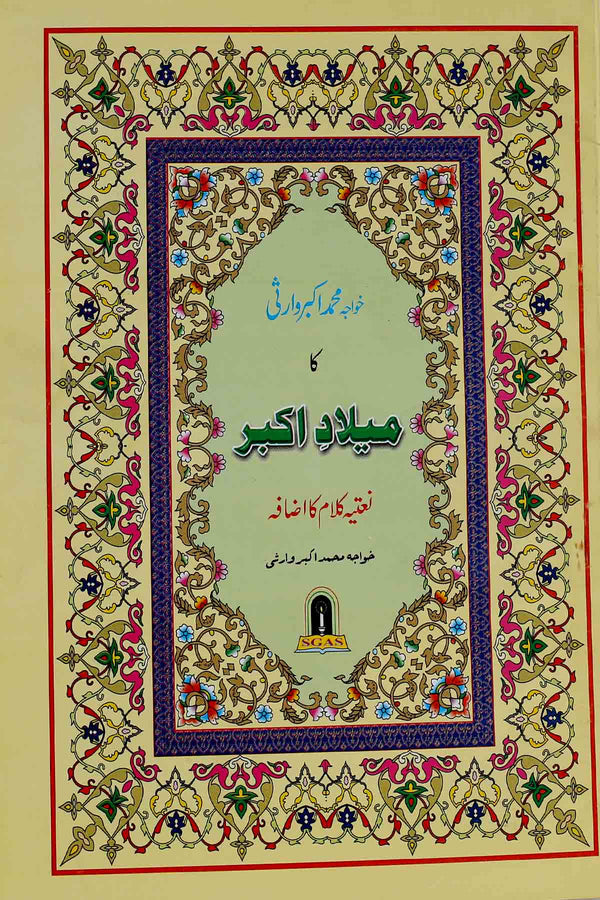 خواجہ محمد اکبر وارثی
کا
میلادِ اکبر
نعتیہ کلام کا اضافہ
خواجہ محمد اکبر وارثی
SGAS